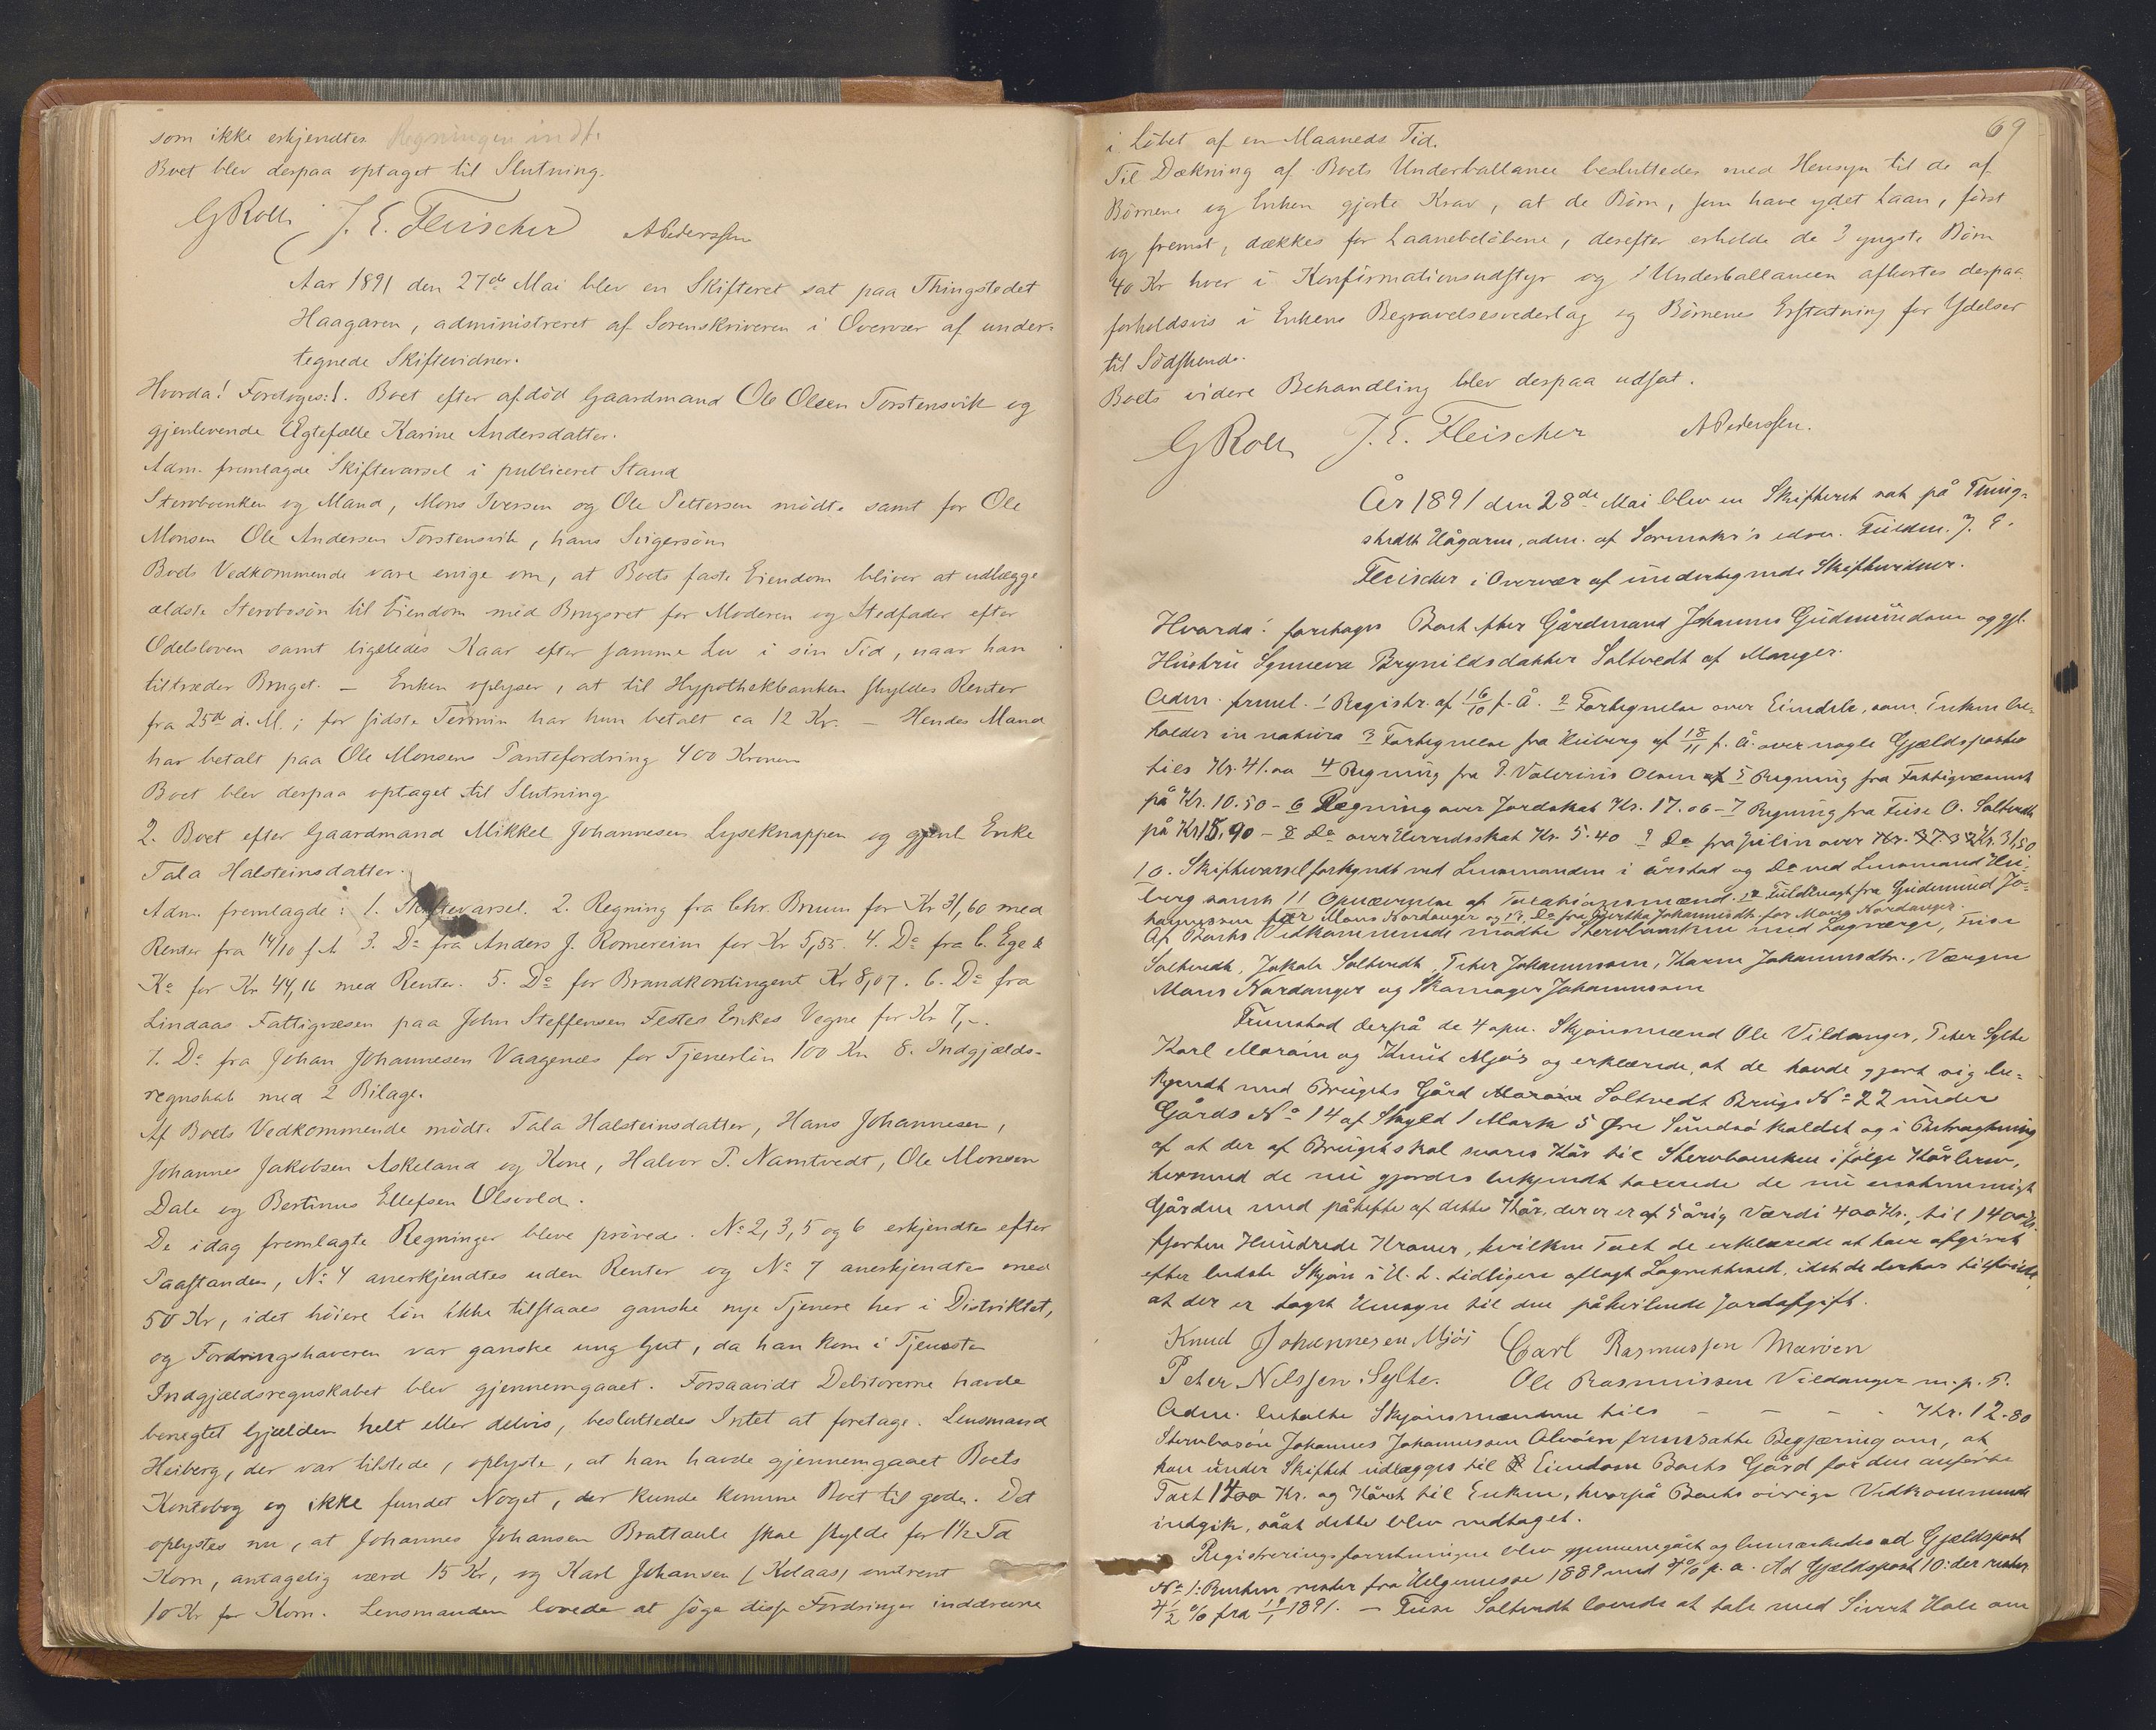 som ikke erkjendtes Regningen indt.
Boet blev derpaa optaget til Slutning.
G Roll J. E. Fleischer A Pederssen
Aar 1891 den 27de Mai blev en Skifteret sat paa Thingstedet
Haagaren, administreret af Sorenskriveren i Overvær af under-
tegnede Skiftevidner.
Hvorda! Foretoges: 1. Boet efter afdød Gaardmand Ole Olsen Torstensvik og
gjenlevende Ægtefælle Karine Andersdatter.
Adm. fremlagde Skiftevarsel i publiceret Stand
Stervboenken og Mand, Mons Iversen og Ole Pettersen mødte samt for Ole
Monsen Ole Andersen Torstensvik, hans Svigersøn
Boets Vedkommende vare enige om, at Boets faste Eiendom bliver at udlægge
ældste Stervbosøn til Eiendom med Brugsret for Moderen og Stedfader efter
Odelsloven samt ligeledes Kaar efter samme Lov i sin Tid, naar han
tiltræder Bruget. – Enken oplyser, at til Hypothekbanken skyldes Renter
fra 25de d. M.; for sidste Termin har hun betalt ca 12 Kr. – Hendes Mand
har betalt paa Ole Monsens Pantefordring 400 Kroner
Boet blev derpaa optaget til Slutning
2. Boet efter Gaardmand Mikkel Johannesen Lyseknappen og gjenl Enke
Tala Halsteinsdatter.
Adm. fremlagde: 1. Skiftevarsel. 2. Regning fra Chr. Bruun for Kr 31,60 med
Renter fra 14/10 f. A 3. Do fra Anders J. Romereim for Kr 5,55. 4. Do fra C. Ege &
Ko for Kr 44,16 med Renter. 5. Do for Brandkontingent Kr 8,07. 6. Do fra
Lindaas Fattigvæsen paa John Steffensen Festes Enkes Vegne for Kr 7,-.
7. Do fra Johan Johannesen Vaagenæs for Tjenerløn 100 Kr 8. Indgjælds-
regnskab med 2 Bilage.
Af Boets Vedkommende mødte Tala Halsteinsdatter, Hans Johannesen,
Johannes Jakobsen Askeland og Kone, Halvor P. Namtvedt, Ole Monsen
Dale og Bertinus Ellefsen Olsvold.
De idag fremlagte Regninger bleve prøvede. No 2, 3, 5 og 6 erkjendtes efter
Paastanden, No 4 anerkjendtes uden Renter og No 7 anerkjendtes med
50 Kr, idet høiere Løn ikke tilstaaes ganske nye Tjenere her i Distriktet,
og Fordringshaveren var ganske ung Gut, da han kom i Tjeneste
Indgjældsregnskabet blev gjennemgaaet. Forsaavidt Debitorerne havde
benegtet Gjælden helt eller delvis, besluttedes Intet at foretage. Lensmand
Heiberg, der var tilstede, oplyste, at han havde gjennemgaaet Boets
Kontobog og ikke fundet Noget, der kunde komme Boet til gode. Det
oplystes nu, at Johannes Johansen Brattaule skal skylde for 1½ Td
Korn, antagelig værd 15 Kr, og Karl Johansen / Kolaas / omtrent
10 Kr for Korn. Lensmanden lovede at søge disse Fordringer inddrevne
69
i Løbet af en Maaneds Tid.
Til Dækning af Boets Underballance besluttedes med Hensyn til de af
Børnene og Enken gjorte Krav, at de Børn, som have ydet Laan, først
og fremst, dækkes for Laanebeløbene, derefter erholde de 3 yngste Børn
40 Kr hver i Konfirmationsudstyr og i Underballancen afkortes derpaa
forholdsvis i Enkens Begravelsesvederlag og Børnenes Erstatning for Ydelser
til Sødskende.
Boets videre Behandling blev derpaa udsat.
G Roll J. E. Fleischer A Pederssen.
År 1891 den 28de Mai blev en Skifteret sat på Thing-
stedet Hågaren, adm. af Sorenskr's edsv. Fuldm. J. E.
Fleischer i Overvær af undertegnede Skiftevidner.
Hvorda: foretoges Boet efter Gårdmand Johannes Gudmundsen og gjl.
Hustru Synneva Brynildsdatter Soltvedt af Manger.
Adm. freml. 1 Registr. af 16/10 f. Å. 2 Fortegnelse over Eiendele, som Enken be-
holder in natura 3 Fortegnelse fra Heiberg af 18/11 f. Å. over nogle Gjældsposter
tils Kr. 41.00 4 Regning fra P. Valerius Olsen 5 Regning fra Fattigvæsenet
på Kr. 10.50 – 6 Regning over Jordskat Kr. 17.06 – 7 Regning fra O. Soltvedt
på Kr 15.90 – 8 Do over Herredsskat Kr. 5.40 9 Do fra over Kr. 37.32 Kr. 31,50
10. Skiftevarsel forkyndt ved Lensmanden i årstad og Do ved Lensmand Hei-
berg samt 11 Opnævnelse af Taxationsmænd. 12 Fuldmagt fra Gudmund Jo-
hannessen for Mons Nordanger og 13. Do fra Bertha Johannesdtr. for Mons Nordanger.
Af Boets Vedkommende mødte Stervboenken med Lagværge,
Soltvedt, Jakob Soltvedt, Peter Johannessen, Karen Johannesdtr., Værgen
Mons Nordanger og Skomager Johannessen
Fremstod derpå de 4 opn. Skjønsmænd Ole Vildanger, Peter Sylte
Karl Marøen og Knut Mjøs og erklærede, at de havde gjort sig be-
kjendt med Brugets Gård Marøen Soltvedt Brugs No 22 under
Gårds No 14 af Skyld 1 Mark 5 Øre Sundsø kaldet og i Betragtning
af at der af Bruget skal svares Kår til Stervboenken ifølge Kårbrev,
hvormed de nu gjordes bekjendt taxerede de nu enstemmigt
Gården med påhefte af dette Kår, der er af 5 årig Værdi 400 Kr., til 1400 Kr.
fjorten Hundrede Kroner, hvilken Taxt de erklærede at have afgivet
efter bedste Skjøn i H. t. tidligere aflagt Lagrettesed, idet de derhos tilføiede,
at der er taget Hensyn til den påhvilende Jordafgift.
Knud Johannesen Mjøs Carl Rasmussen Marøen
Peter Nilssen Sylte. Ole Rasmussen Vildanger m. p. P.
Adm. betalte Skjønsmændene tils – – – Kr. 12.80
Stervbosøn Johannes Johannessen Alvøen fremsatte Begjæring om, at
han under Skiftet udlægges til Eiendom Boets Gård for den anførte
Taxt 1400 Kr. og Kåret til Enken, hvorpå Boets øvrige Vedkommende
indgik, såat dette blev vedtaget.
Registreringsforretningen blev gjennemgået og bemærkedes ad Gjældspost
No 1: Renten renter fra Helgemesse 1889 med 4% p. a. Ad Gjældspost 10: der renter
4½ % fra 19/1 1891. – Soltvedt lovede at tale med Sivert Hole om